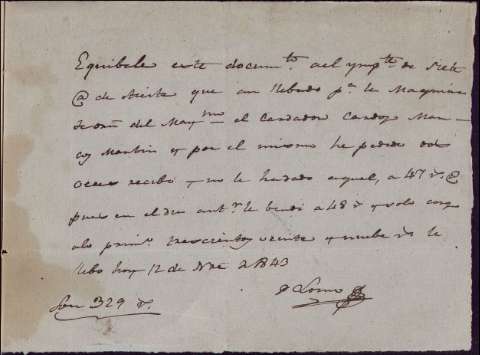 Equibale este docum.to al ymp.te de siete
@ de Aceite que an llebado p.a la Maquina
de orn del May.mo el Cardador Carlos Mar-
cos Martin y por el mismo he pedido dos
oceces recibo y no le ha dado aquel, a 47 r.s @
pues en el dia ant.r le bendi a 48 r.s y solo cargo
a lo prim.o trescientos veinte y nuebe r.s le
llebo hoy 12 de Dre de 1843
Son 329 r.s